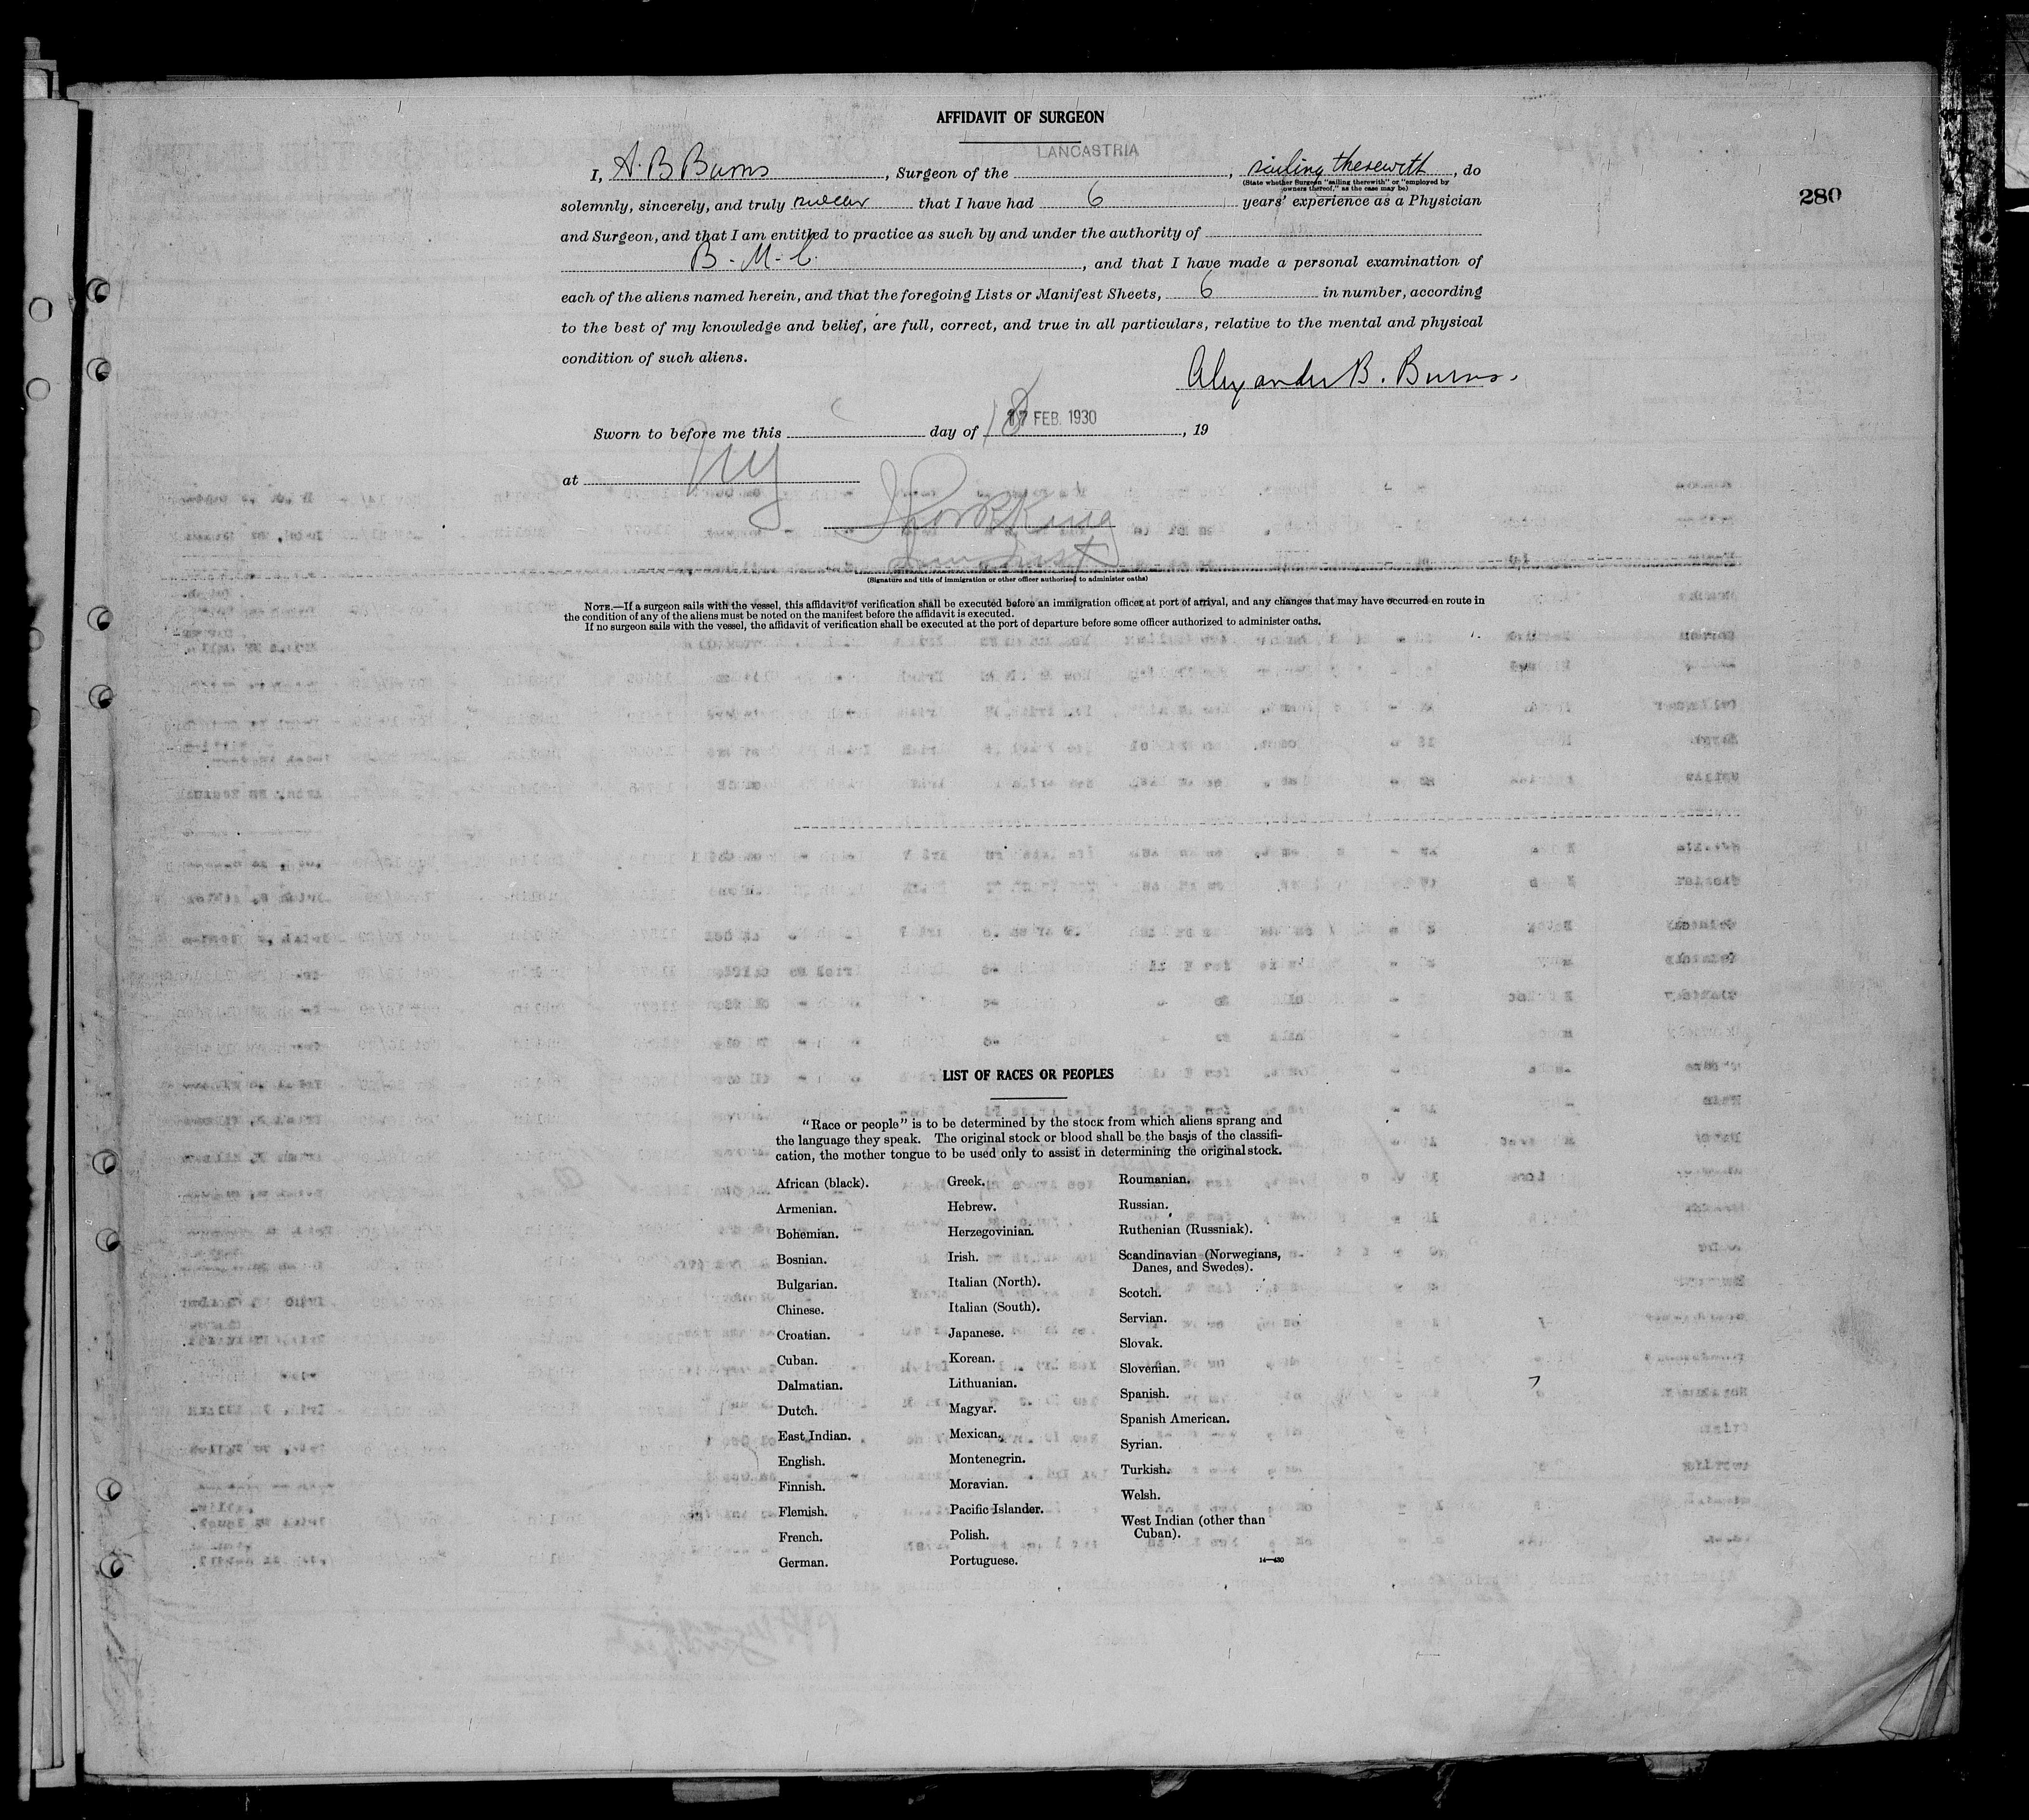 AFFIDAVIT OF SURGEON
LANCASTRIA
I, A. B Burns, Surgeon of the, sailing therewith, do
(State whether Surgeon "sailing therewith" or "employed by
owners thereof," as the case may be)
280
solemnly, sincerely, and truly swear that I have had 6 years' experience as a Physician
and Surgeon, and that I am entitled to practice as such by and under the authority of
B. M. C., and that I have made a personal examination of
each of the aliens named herein, and that the foregoing Lists or Manifest Sheets, 6 in number, according
to the best of my knowledge and belief, are full, correct, and true in all particulars, relative to the mental and physical
condition of such aliens.
Alexander B. Burns.
Sworn to before me this day of 18 17 FEB. 1930, 19
at NY
(Signature and title of immigration or other officer authorized to administer oaths)
NOTE.—If a surgeon sails with the vessel, this affidavit of verification shall be executed before an immigration officer at port of arrival, and any changes that may have occurred en route in
the condition of any of the aliens must be noted on the manifest before the affidavit is executed.
If no surgeon sails with the vessel, the affidavit of verification shall be executed at the port of departure before some officer authorized to administer oaths.
LIST OF RACES OR PEOPLES
"Race or people" is to be determined by the stock from which aliens sprang and
the language they speak. The original stock or blood shall be the basis of the classifi-
cation, the mother tongue to be used only to assist in determining the original stock.
African (black).
Armenian.
Bohemian.
Bosnian.
Bulgarian.
Chinese.
Croatian.
Cuban.
Dalmatian.
Dutch.
East Indian.
English.
Finnish.
Flemish.
French.
German.
Greek.
Hebrew.
Herzegovinian.
Irish.
Italian (North).
Italian (South).
Japanese.
Korean.
Lithuanian.
Magyar.
Mexican.
Montenegrin.
Moravian.
Pacific Islander.
Polish.
Portuguese.
Roumanian.
Russian.
Ruthenian (Russniak).
Scandinavian (Norwegians,
Danes, and Swedes).
Scotch.
Servian.
Slovak.
Slovenian.
Spanish.
Spanish American.
Syrian.
Turkish.
Welsh.
West Indian (other than
Cuban).
14—430